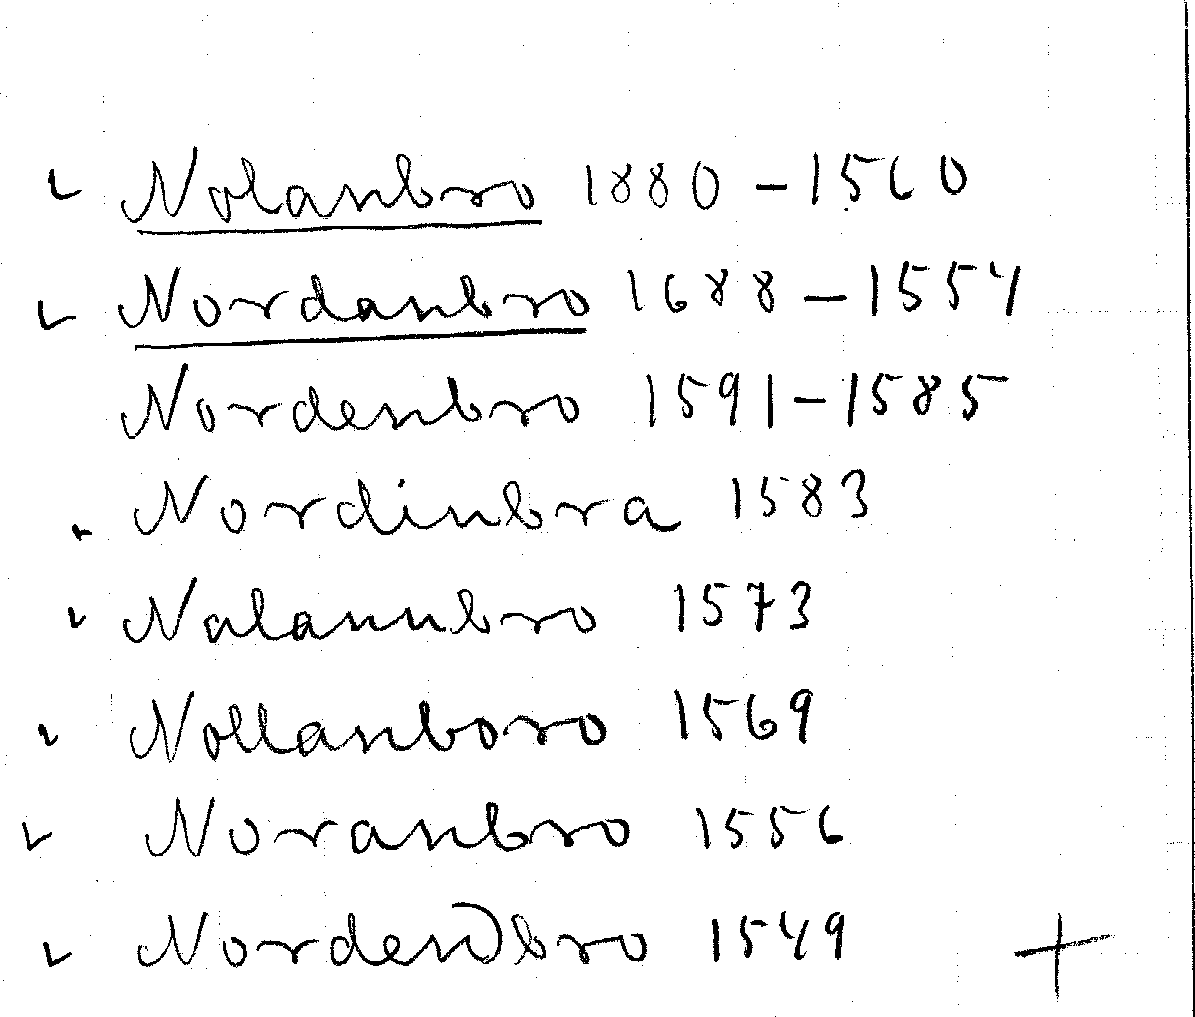 Nolanbro 1880-1560
Nordanbro 1688-1554
Nordenbro 1591-1585
Nordinbra 1583
Nalannbro 1573
Nollanboro 1569
Noranbro 1556
Norden)bro 1549